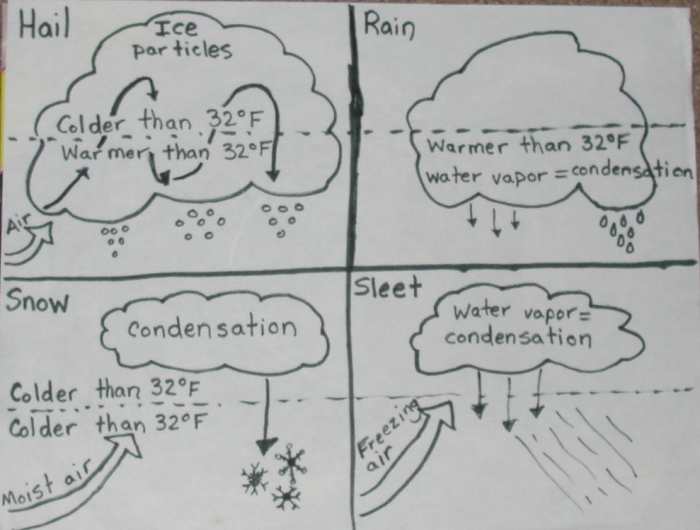 Hail
Ice
particles
Colder than 32°F
Warmer than 32°F
Air
Rain
Warmer than 32°F
water vapor = condensation
Snow
condensation
Colder than 32°F
Colder than 32°F
Moist air
Sleet
Water vapor =
condensation
Freezing
air